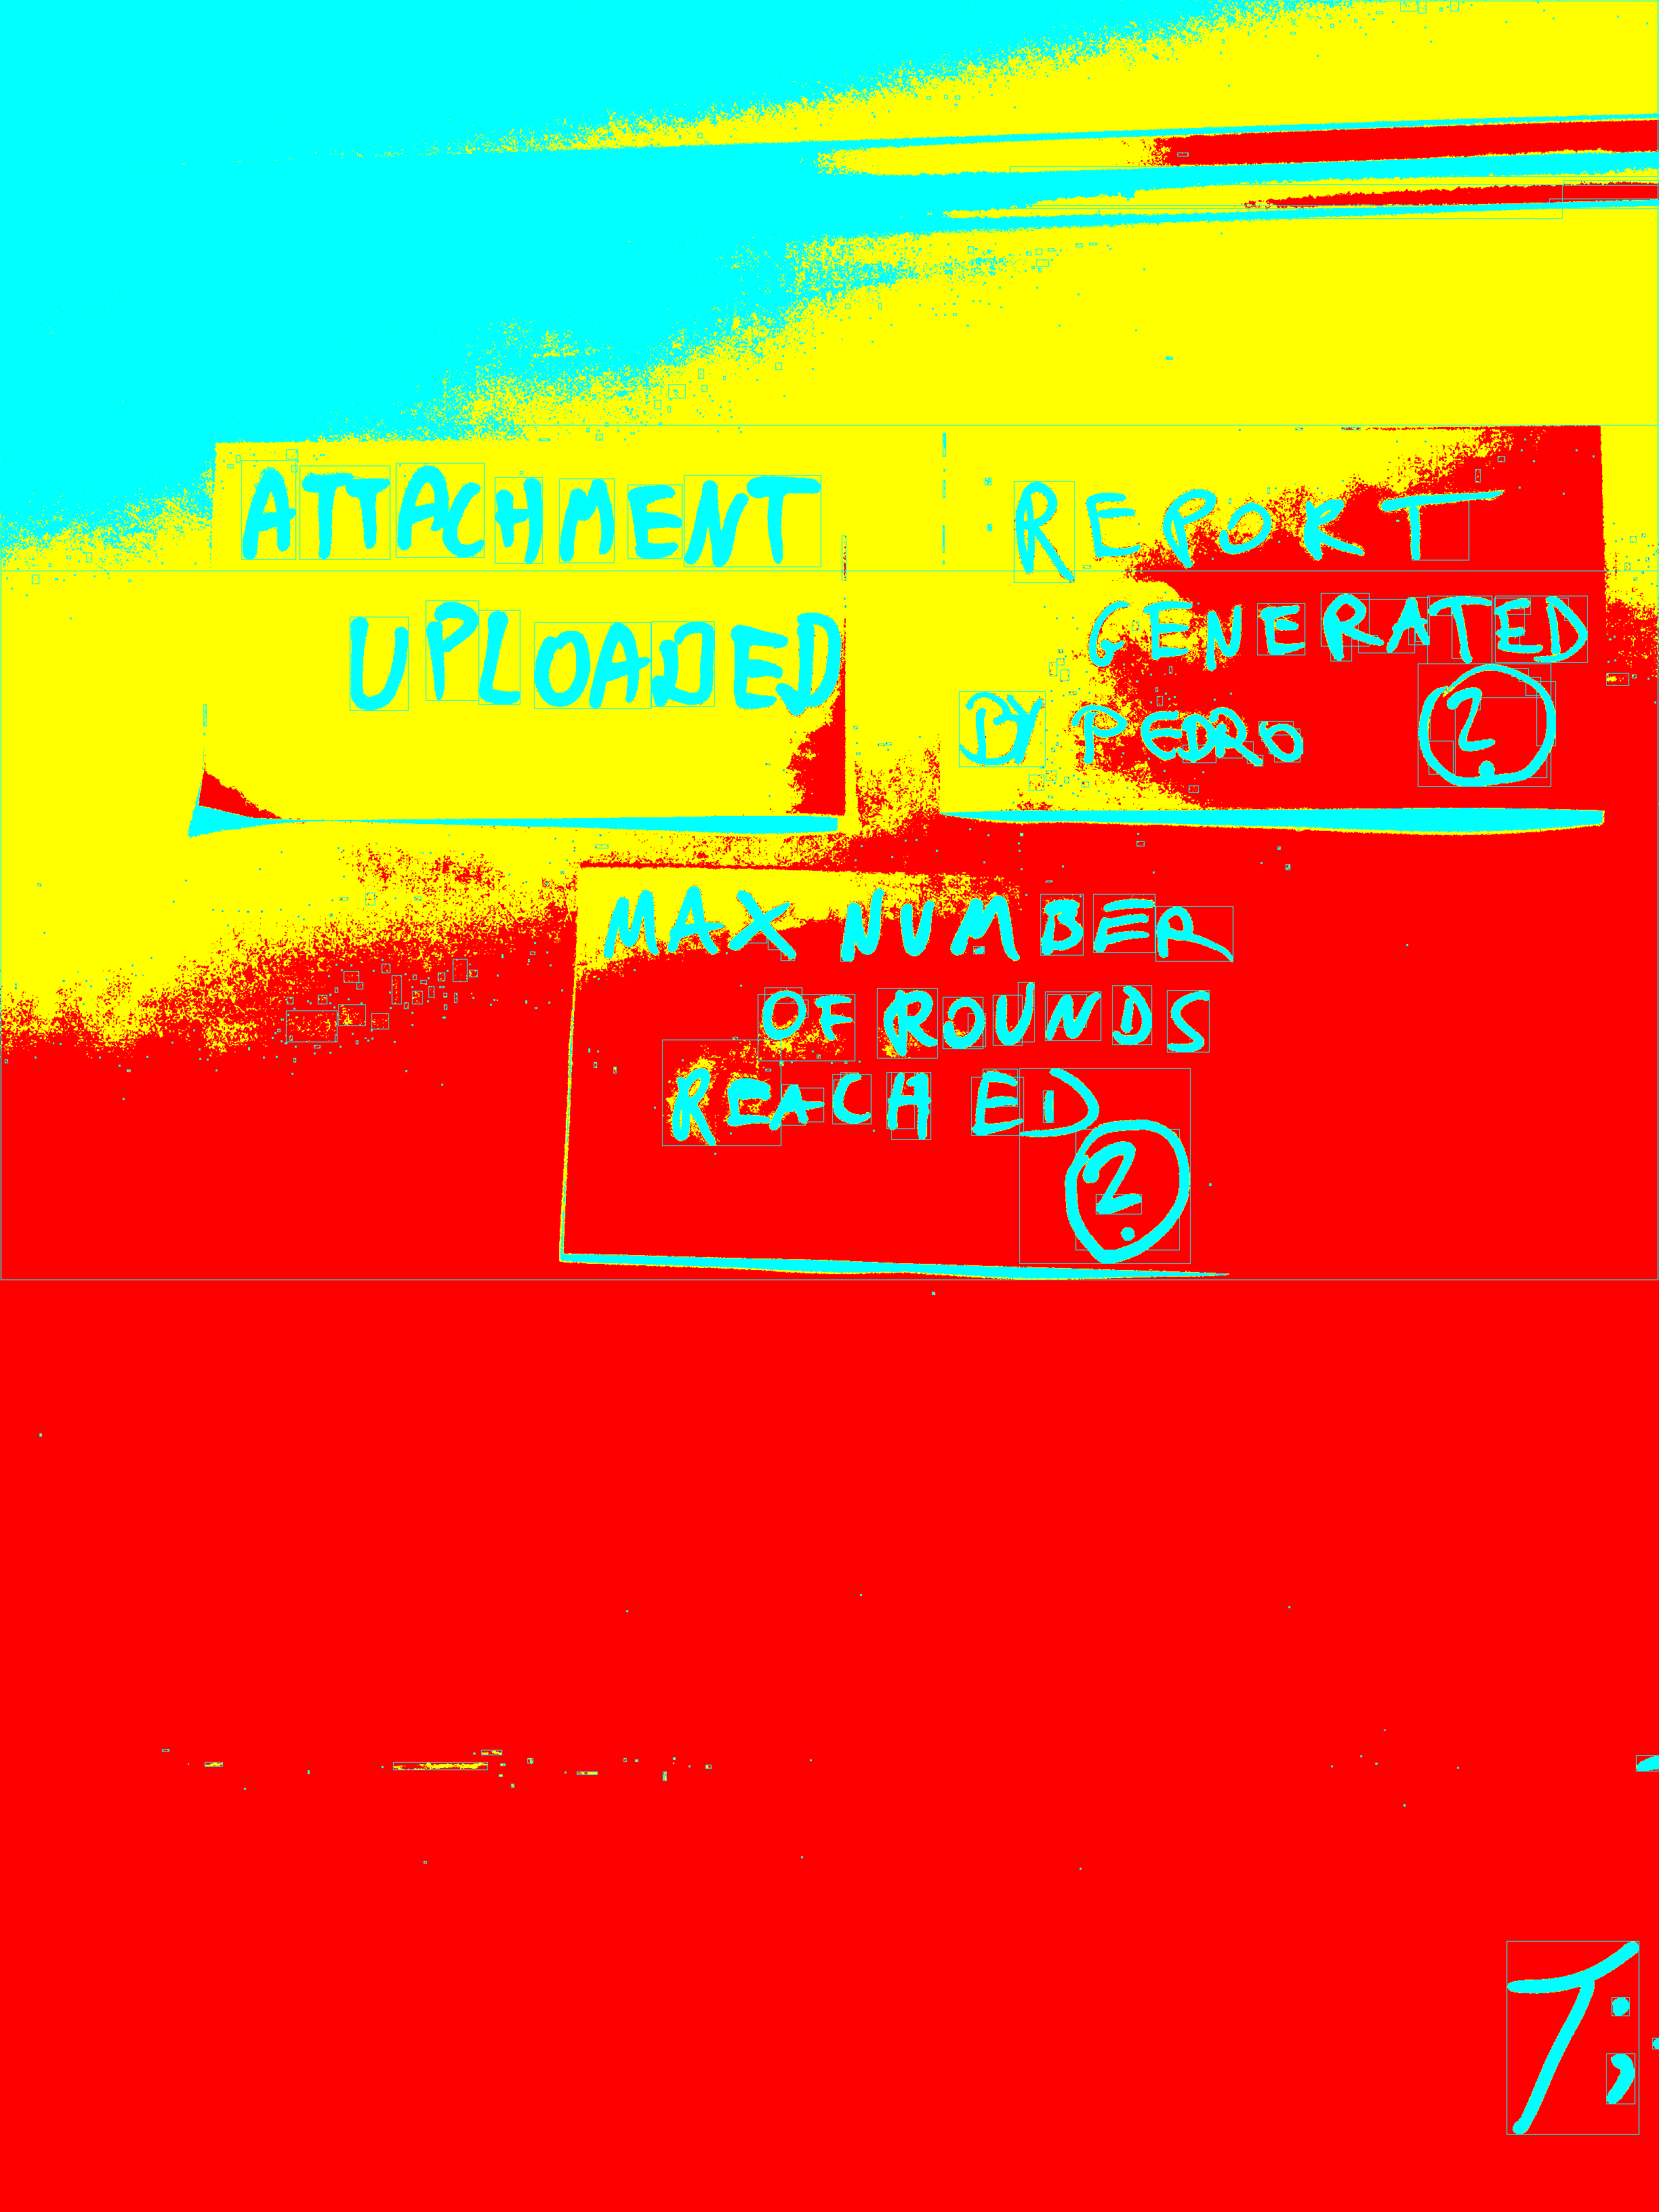 ATTACHMENT
UPLOADED
REPORT
GENERATED
BY PEDRO ?
MAX NUMBER
OF ROUNDS
REACHED
?
T;